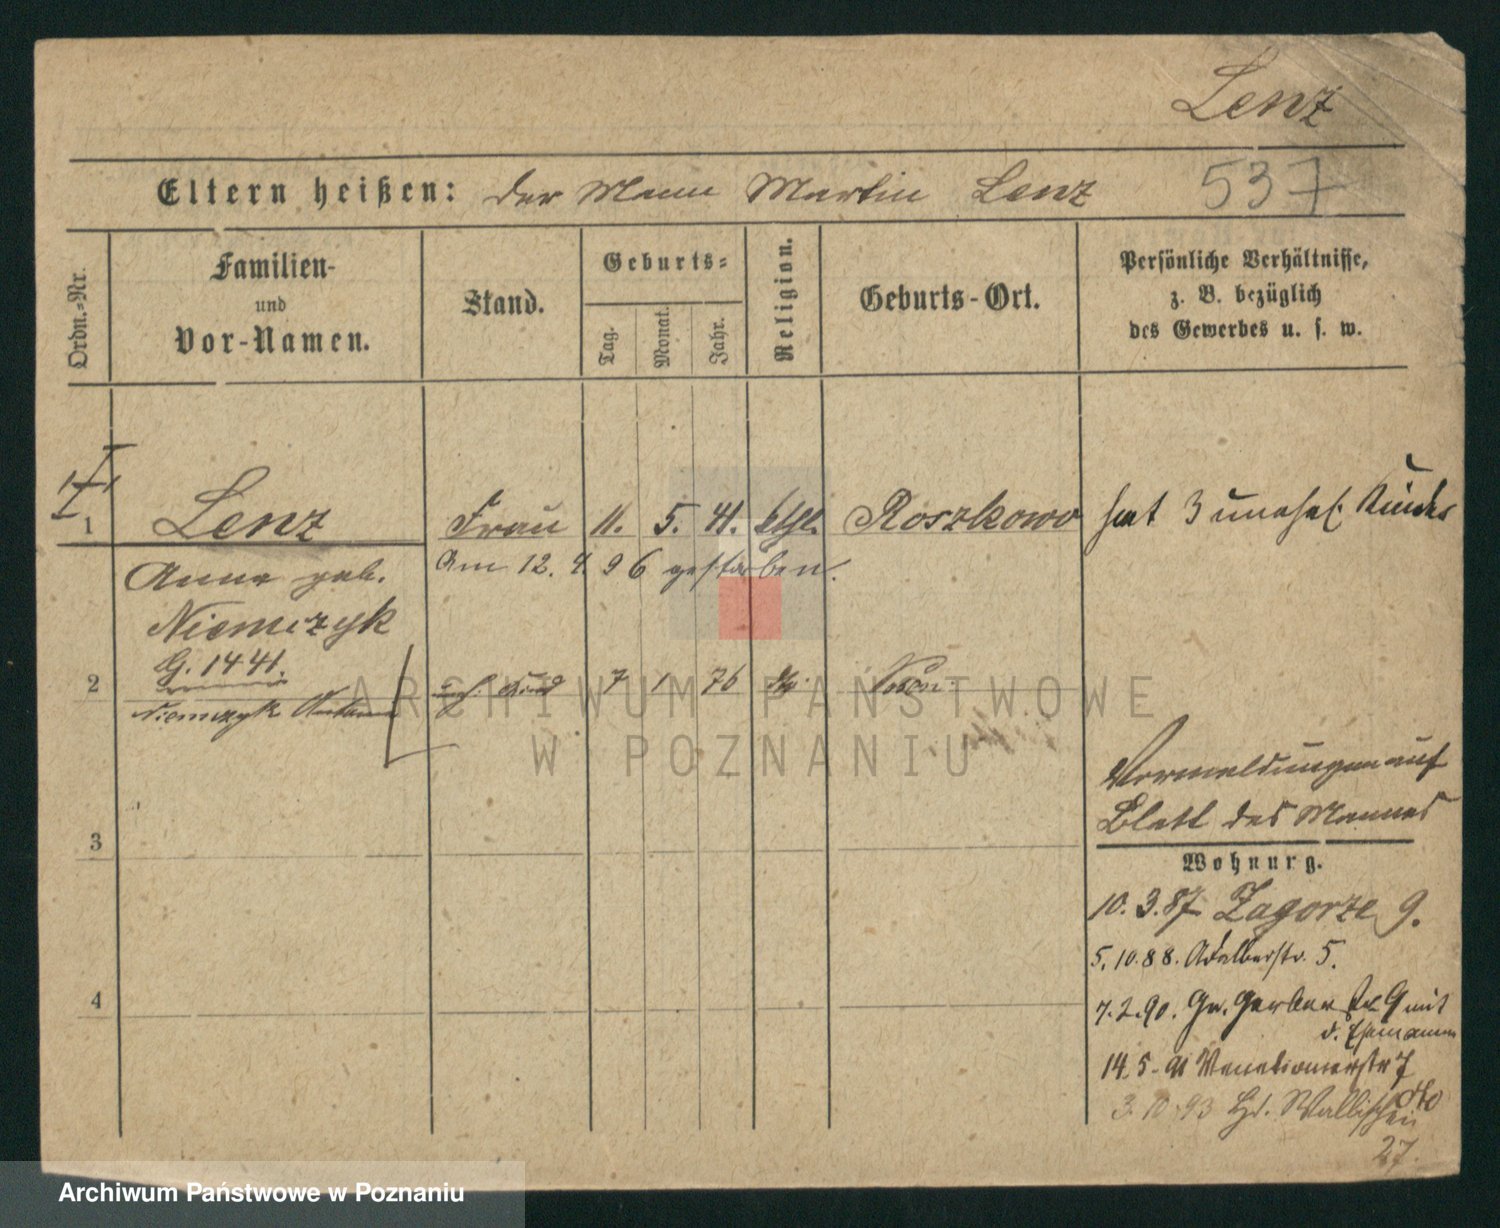 Lenz
Eltern heißen: der Mann Martin Lenz 537
Ordn.-Nr.
Familien-
und
Vor-Namen.
Stand.
Geburts-
Tag.
Monat.
Jahr.
Religion.
Geburts-Ort.
Persönliche Verhältnisse,
z. B. bezüglich
des Gewerbes u. s. w.
1 Lenz Frau 11. 5. 41. kthl. Roszkowo hat 3 unehel. Kinder
Anna geb. Am 12. 4. 96 gestorben.
Niemczyk
G. 1441.
2 Kind 7 1 76 Posen
Niemczyk
Vermeldungen auf
Blatt des Mannes
3
Wohnung.
10. 3. 87 Zagorze 9.
5. 10. 88. Adalbertstr. 5.
4
7. 2. 90. Gr. Gerber Str 9 mit
d. Ehemann
14. 5. 91 Venetianerstr 7
dto
3. 10. 93 Wallischei
27.
ARCHIWUM PAŃSTWOWE
W POZNANIU
Archiwum Państwowe w Poznaniu